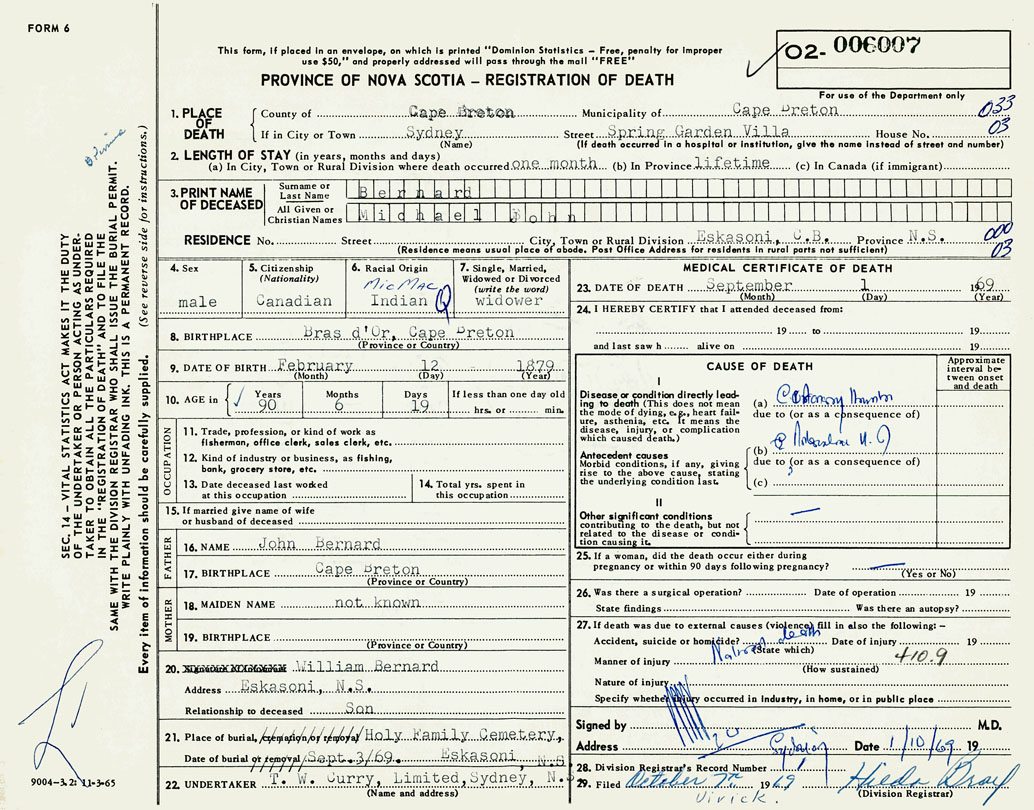 FORM 6
This form, if placed in an envelope, on which is printed "Dominion Statistics – Free, penalty for improper
use $50," and properly addressed will pass through the mail "FREE"
PROVINCE OF NOVA SCOTIA – REGISTRATION OF DEATH
02- 006007
For use of the Department only
SEC. 14 – VITAL STATISTICS ACT MAKES IT THE DUTY
OF THE UNDERTAKER OR PERSON ACTING AS UNDER-
TAKER TO OBTAIN ALL THE PARTICULARS REQUIRED
IN THE "REGISTRATION OF DEATH" AND TO FILE THE
SAME WITH THE DIVISION REGISTRAR WHO SHALL ISSUE THE BURIAL PERMIT.
WRITE PLAINLY WITH UNFADING INK. THIS IS A PERMANENT RECORD.
Every item of information should be carefully supplied. (See reverse side for instructions.)
1. PLACE OF DEATH
County of Cape Breton Municipality of Cape Breton 033
If in City or Town Sydney Street Spring Garden Villa House No. 03
(Name) (If death occurred in a hospital or institution, give the name instead of street and number)
2. LENGTH OF STAY (in years, months and days)
(a) In City, Town or Rural Division where death occurred one month (b) In Province lifetime (c) In Canada (if immigrant)
3. PRINT NAME OF DECEASED
Surname or Last Name Bernard
All Given or Christian Names Michael John
RESIDENCE No. Street City, Town or Rural Division Eskasoni, C.B. Province N.S. 000 03
(Residence means usual place of abode. Post Office Address for residents in rural parts not sufficient)
4. Sex
male
5. Citizenship (Nationality)
Canadian
6. Racial Origin
MicMac
Indian
7. Single, Married, Widowed or Divorced (write the word)
widower
8. BIRTHPLACE Bras d'Or, Cape Breton
(Province or Country)
9. DATE OF BIRTH February 12 1879
(Month) (Day) (Year)
10. AGE in Years Months Days If less than one day old
90 6 19 hrs. or min.
OCCUPATION
11. Trade, profession, or kind of work as
fisherman, office clerk, sales clerk, etc.
12. Kind of industry or business, as fishing,
bank, grocery store, etc.
13. Date deceased last worked
at this occupation
14. Total yrs. spent in
this occupation
15. If married give name of wife
or husband of deceased
FATHER
16. NAME John Bernard
17. BIRTHPLACE Cape Breton
(Province or Country)
MOTHER
18. MAIDEN NAME not known
19. BIRTHPLACE
(Province or Country)
20. William Bernard
Address Eskasoni, N.S.
Relationship to deceased Son
21. Place of burial, cremation or removal Holy Family Cemetery,
Date of burial or removal Sept. 3/69. Eskasoni, N.S.
22. UNDERTAKER T. W. Curry, Limited, Sydney, N.S.
(Name and address)
9004–3.2: 11-3-65
MEDICAL CERTIFICATE OF DEATH
23. DATE OF DEATH September 1 1969
(Month) (Day) (Year)
24. I HEREBY CERTIFY that I attended deceased from:
19 to 19
and last saw h alive on 19
CAUSE OF DEATH
Approximate interval between onset and death
I
Disease or condition directly lead-
ing to death (This does not mean
the mode of dying, e.g., heart fail-
ure, asthenia, etc. It means the
disease, injury, or complication
which caused death.)
(a) Coronary
due to (or as a consequence of)
Antecedent causes
Morbid conditions, if any, giving
rise to the above cause, stating
the underlying condition last.
(b)
due to (or as a consequence of)
(c)
II
Other significant conditions
contributing to the death, but not
related to the disease or condi-
tion causing it.
25. If a woman, did the death occur either during
pregnancy or within 90 days following pregnancy?
(Yes or No)
26. Was there a surgical operation? Date of operation 19
State findings Was there an autopsy?
27. If death was due to external causes (violence) fill in also the following: –
Accident, suicide or homicide? Natural death Date of injury 19
(State which)
410.9
Manner of injury
(How sustained)
Nature of injury
Specify whether injury occurred in Industry, in home, or in public place
Signed by M.D.
Address Sydney Date 1/10/69 19
28. Division Registrar's Record Number
29. Filed October 7th 1969 Hilda
(Division Registrar)